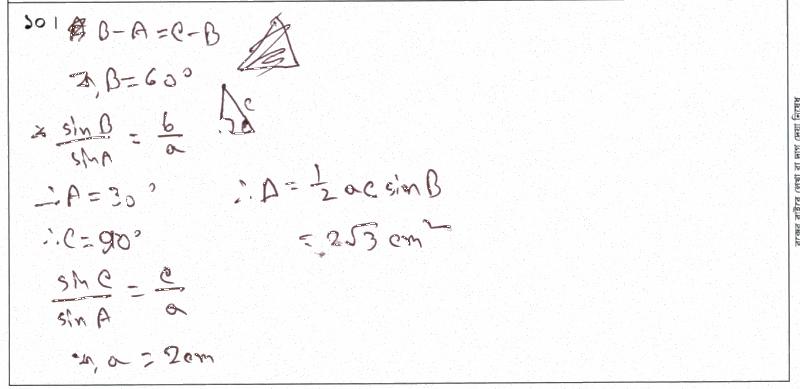 ১০।  B-A=C-B
বা, B=60°
c
∴ sinB/sinA = b/a
∴A=30°
∴C=90°
sinC/sinA = c/a
বা, a = 2cm
∴Δ = 1/2 ac sinB
= 2√3 cm²